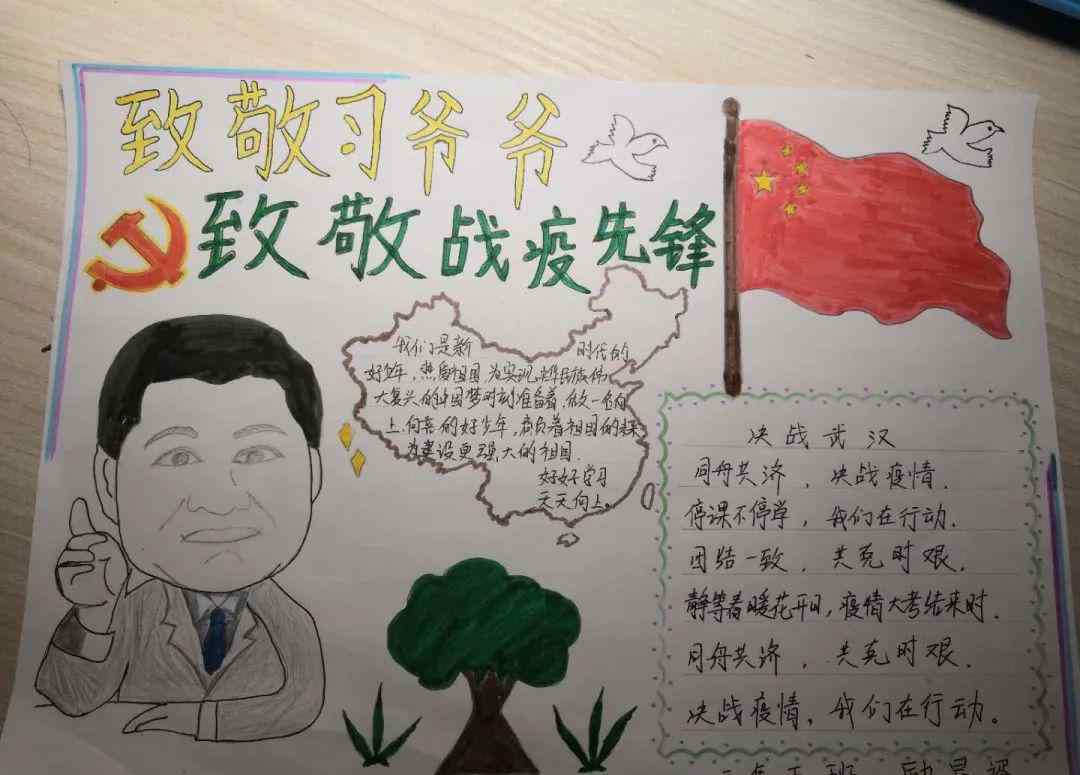 致敬习爷爷
致敬战疫先锋
我们是新时代的
好少年,热爱祖国,为实现中华民族伟
大复兴的中国梦时刻准备着,做一名向
上向善的好少年,肩负着祖国的未来
为建设更强大的祖国.
好好学习
天天向上。
决战武汉
同舟共济,决战疫情.
停课不停学,我们在行动.
团结一致,共克时艰.
静等春暖花开日,疫情大考结束时.
同舟共济,共克时艰.
决战疫情,我们在行动。